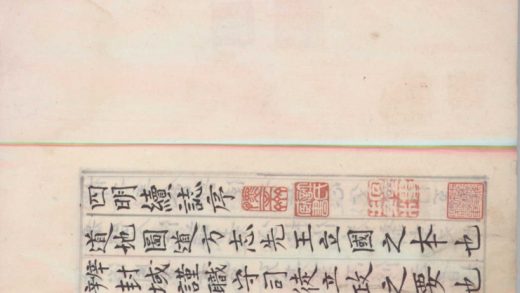 四明續誌序
道地圖道方志先王立國之本也
辨封域謹職守司徒立政之要也